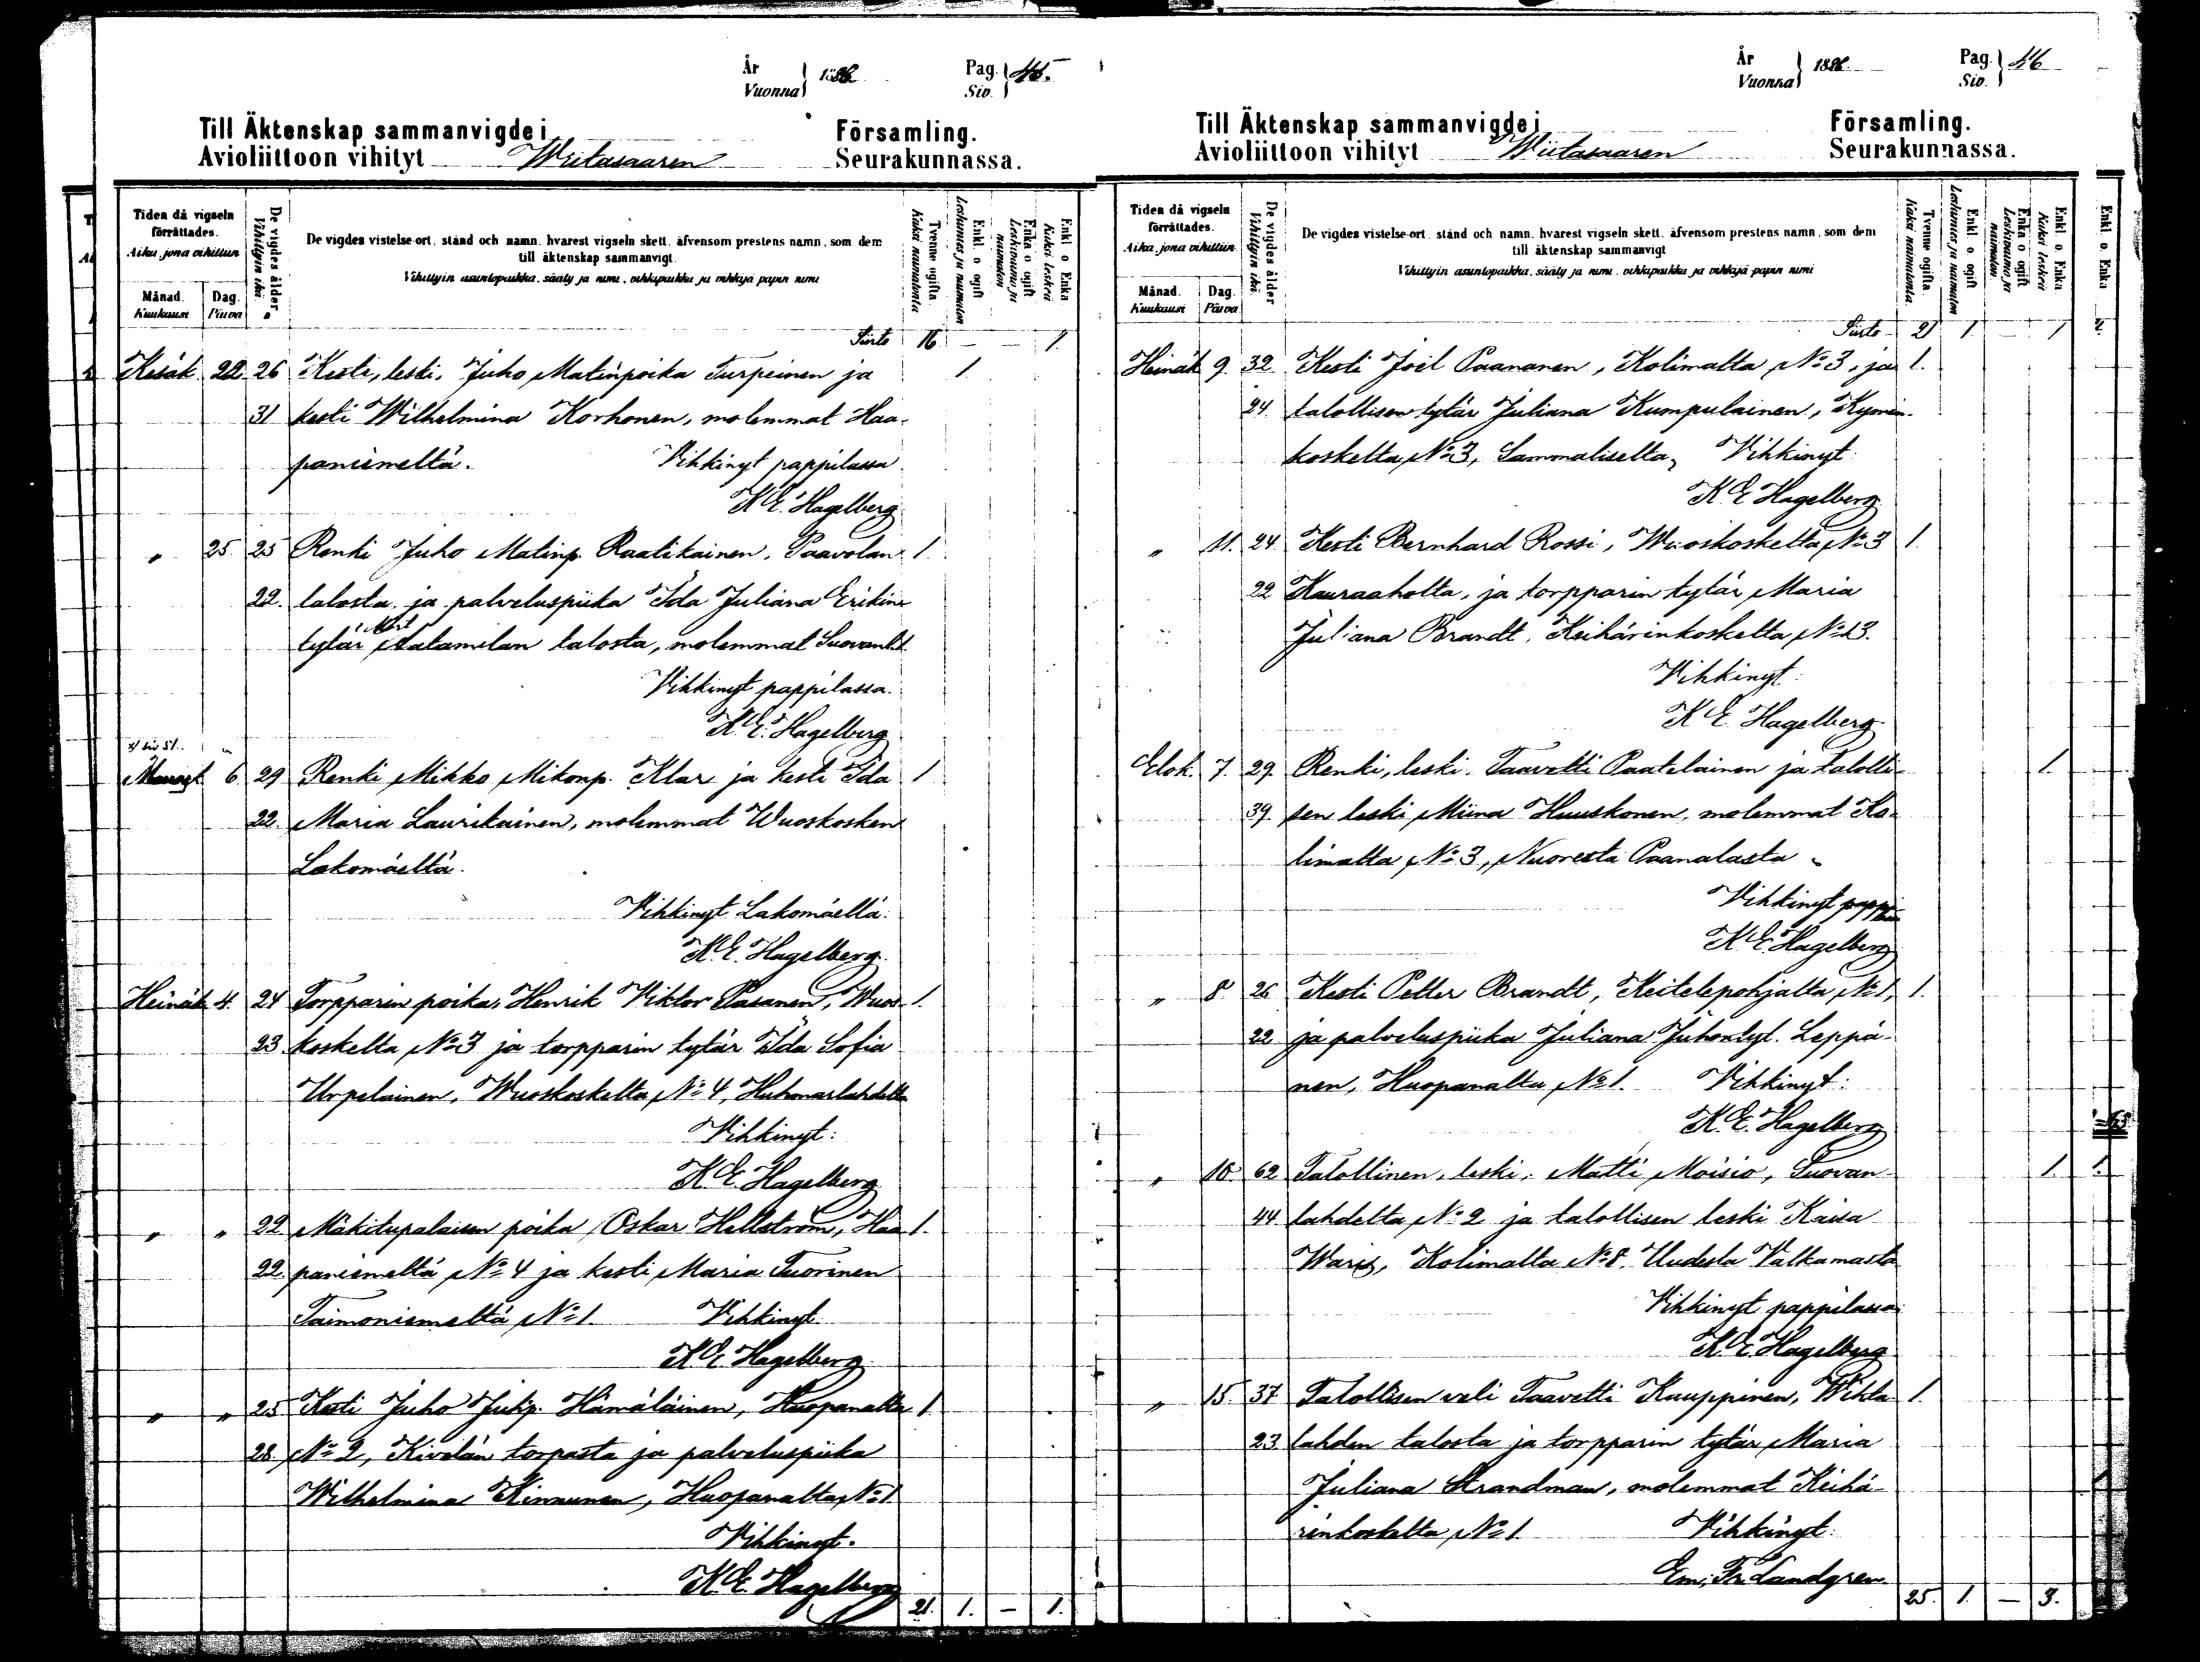 År
Vuonna } 188
Pag.
Siv. } 45.
Till Äktenskap sammanvigde i Församling.
Avioliittoon vihityt Wiitasaaren Seurakunnassa.
Tiden då vigseln förrättades.
Aika, jona vihittiin
Månad. Kuukausi
Dag. Päivä
De vigdes ålder
Vihittyin ikä.
De vigdes vistelse-ort, stånd och namn, hvarest vigseln skett, äfvensom prestens namn, som dem
till äktenskap sammanvigt.
Vihittyin asuntopaikka, sääty ja nimi, vihkipaikka ja vihkijä papin nimi
Tvenne ogifta.
Kaksi naimatonta.
Enkl. o. ogift
Leskimies ja naimaton
Enka o. ogift
Leskivaimo ja naimaton
Enkl. o. Enka
Kaksi leskeä
Siirto 16 — — 1.
Kesäk. 22 26 Kesti, leski, Juho Matinpoika Turpeinen ja 1
31 kesti Wilhelmina Korhonen, molemmat Haa-
paniemeltä. Vihkinyt pappilassa
K. E. Hagelberg
" 25. 25 Renki Juho Matinp. Raatikainen, Paavolan 1.
22. talosta ja palveluspiika Ida Juliana Erikin
tytär Aatamilan talosta, molemmat Suovanl.
Vihkinyt pappilassa.
K. E. Hagelberg
6 29 Renki Mikko Mikonp. Klar ja kesti Ida 1
22. Maria Laurikainen, molemmat Wuoskosken
Lakomäeltä.
Vihkinyt Lakomäellä.
K. E. Hagelberg.
Heinäk. 4. 24 Torpparin poika, Henrik Viktor Pasanen, Wuos- 1.
23 koskelta No 3 ja torpparin tytär Ida Sofia
Urpelainen, Wuoskoskelta, No 4, Huhmarlahdelta
Vihkinyt:
K. E. Hagelberg
" " 22 Mäkitupalaisen poika Oskar Hellström, Haa- 1.
22. paniemeltä No 4 ja kesti Maria Tuorinen
Taimoniemeltä No 1. Vihkinyt
K E Hagelberg.
" " 25 Kesti Juho Juhp. Hämäläinen, Huopanalta 1
28 No 2, Kivelän torpasta ja palveluspiika
Wilhelmina Kinnunen, Huopanalta No 1
Vihkinyt.
K. E. Hagelberg
21. 1. — 1.
År
Vuonna } 188
Pag.
Siv. } 46
Till Äktenskap sammanvigde i Församling.
Avioliittoon vihityt Wiitasaaren Seurakunnassa.
Tiden då vigseln förrättades.
Aika, jona vihittiin
Månad. Kuukausi
Dag. Päivä
De vigdes ålder
Vihittyin ikä.
De vigdes vistelse-ort, stånd och namn, hvarest vigseln skett, äfvensom prestens namn, som dem
till äktenskap sammanvigt
Vihittyin asuntopaikka, sääty ja nimi, vihkipaikka ja vihkijä papin nimi
Tvenne ogifta.
Kaksi naimatonta.
Enkl. o. ogift
Leskimies ja naimaton
Enka o. ogift
Leskivaimo ja naimaton
Enkl. o. Enka
Kaksi leskeä
Siirto 21 1 — 1
Heinäk. 9. 32 Kesti Joel Paananen, Kolimalta No 3, ja 1.
24. talollisen tytär Juliana Kumpulainen, Kymön-
koskelta No 3, Sammaliselta, Vihkinyt:
K. E Hagelberg
" 11. 24 Kesti Bernhard Rossi, Wuoskoskelta No 3 1
22 Kauraaholta, ja torpparin tytär Maria
Juliana Brandt, Keihärinkoskelta No 13.
Vihkinyt:
K E. Hagelberg
Elok. 7. 29. Renki, leski, Taavetti Paatelainen ja talolli- 1.
39. sen leski Miina Huuskonen, molemmat Ko-
limalta No 3, Nuoresta Paanalasta
Vihkinyt
K E Hagelberg
" 8 26 Kesti Petter Brandt, Keitelepohjalta No 1, 1.
22 ja palveluspiika Juliana Juhontyt. Leppä-
nen, Huopanalta No 1. Vihkinyt:
K. E. Hagelberg
" 10. 62 Talollinen, leski, Matti Moisio, Suovan- 1.
44 lahdelta No 2 ja talollisen leski Kaisa
Waris, Kolimalta No 8. Uudesta Valkamasta
Vihkinyt pappilassa
K. E. Hagelberg
" 15 37 Talollisen veli Taavetti Kauppinen, Wiikta- 1.
23 lahden talosta ja torpparin tytär Maria
Juliana Strandman, molemmat Keihä-
rinkoskelta No 1. Vihkinyt:
Em. Fr. Landgren.
25. 1. — 3.
Enkl. o. Enka